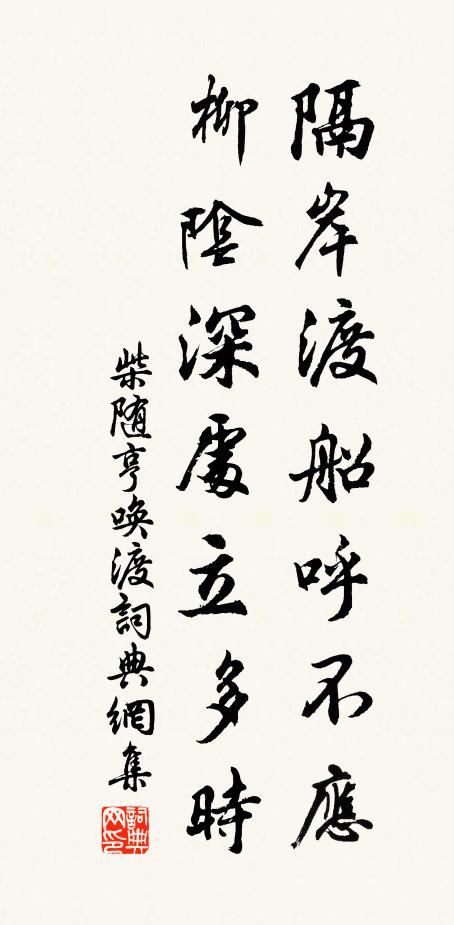 隔岸渡船呼不應
柳陰深處立多時
柴随亨唤渡詞典網集
詞典网印